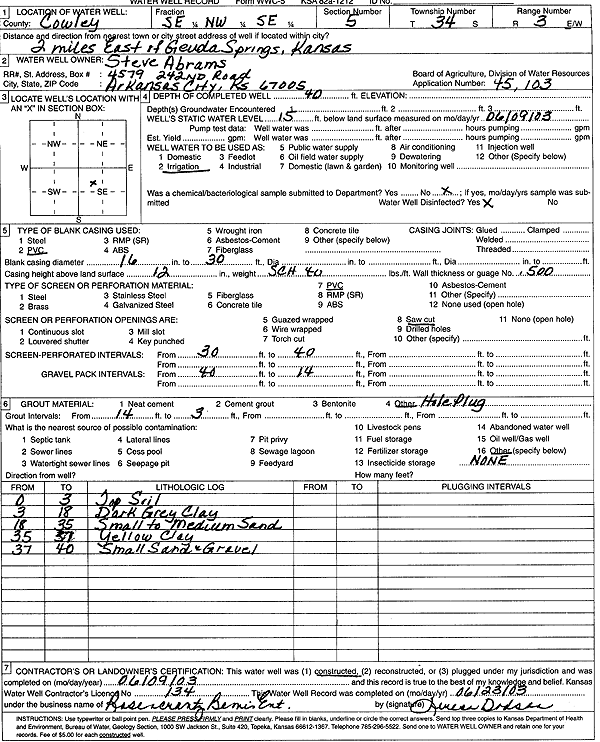 WATER WELL RECORD Form WWC-5 KSA 82a-1212 ID No.
1 LOCATION OF WATER WELL: Fraction Section Number Township Number Range Number
County: Cowley SE ¼ NW ¼ SE ¼ 5 T 34 S R 3 E/W
Distance and direction from nearest town or city street address of well if located within city?
2 miles East of Geuda Springs, Kansas
2 WATER WELL OWNER: Steve Abrams
RR#, St. Address, Box # : 4579 242nd Road Board of Agriculture, Division of Water Resources
City, State, ZIP Code : Arkansas City, KS 67005 Application Number: 45,103
3 LOCATE WELL'S LOCATION WITH AN "X" IN SECTION BOX:
N
NW NE
W E
SW SE
X
S
4 DEPTH OF COMPLETED WELL 40 ft. ELEVATION:
Depth(s) Groundwater Encountered 1 ft. 2 ft. 3 ft.
WELL'S STATIC WATER LEVEL 15 ft. below land surface measured on mo/day/yr 06/09/03
Pump test data: Well water was ft. after hours pumping gpm
Est. Yield gpm: Well water was ft. after hours pumping gpm
WELL WATER TO BE USED AS: 5 Public water supply 8 Air conditioning 11 Injection well
1 Domestic 3 Feedlot 6 Oil field water supply 9 Dewatering 12 Other (Specify below)
2 Irrigation 4 Industrial 7 Domestic (lawn & garden) 10 Monitoring well
Was a chemical/bacteriological sample submitted to Department? Yes No X ; If yes, mo/day/yrs sample was sub-
mitted Water Well Disinfected? Yes X No
5 TYPE OF BLANK CASING USED: 5 Wrought iron 8 Concrete tile CASING JOINTS: Glued Clamped
1 Steel 3 RMP (SR) 6 Asbestos-Cement 9 Other (specify below) Welded
2 PVC 4 ABS 7 Fiberglass Threaded
Blank casing diameter 16 in. to 30 ft., Dia in. to ft., Dia in. to ft.
Casing height above land surface 12 in., weight SCH 40 lbs./ft. Wall thickness or guage No. .500
TYPE OF SCREEN OR PERFORATION MATERIAL: 7 PVC 10 Asbestos-Cement
1 Steel 3 Stainless Steel 5 Fiberglass 8 RMP (SR) 11 Other (Specify)
2 Brass 4 Galvanized Steel 6 Concrete tile 9 ABS 12 None used (open hole)
SCREEN OR PERFORATION OPENINGS ARE: 5 Guazed wrapped 8 Saw cut 11 None (open hole)
1 Continuous slot 3 Mill slot 6 Wire wrapped 9 Drilled holes
2 Louvered shutter 4 Key punched 7 Torch cut 10 Other (specify) ft.
SCREEN-PERFORATED INTERVALS: From 30 ft. to 40 ft., From ft. to ft.
From ft. to ft., From ft. to ft.
GRAVEL PACK INTERVALS: From 40 ft. to 14 ft., From ft. to ft.
From ft. to ft., From ft. to ft.
6 GROUT MATERIAL: 1 Neat cement 2 Cement grout 3 Bentonite 4 Other Hole Plug
Grout Intervals: From 14 ft. to 3 ft., From ft. to ft., From ft. to ft.
What is the nearest source of possible contamination: 10 Livestock pens 14 Abandoned water well
1 Septic tank 4 Lateral lines 7 Pit privy 11 Fuel storage 15 Oil well/Gas well
2 Sewer lines 5 Cess pool 8 Sewage lagoon 12 Fertilizer storage 16 Other (specify below)
3 Watertight sewer lines 6 Seepage pit 9 Feedyard 13 Insecticide storage NONE
Direction from well? How many feet?
FROM TO LITHOLOGIC LOG FROM TO PLUGGING INTERVALS
0 3 Top Soil
3 18 Dark Grey Clay
18 35 Small to Medium Sand
35 37 Yellow Clay
37 40 Small Sand & Gravel
7 CONTRACTOR'S OR LANDOWNER'S CERTIFICATION: This water well was (1) constructed, (2) reconstructed, or (3) plugged under my jurisdiction and was
completed on (mo/day/year) 06/09/03 and this record is true to the best of my knowledge and belief. Kansas
Water Well Contractor's Licence No 134 This Water Well Record was completed on (mo/day/yr) 06/23/03
under the business name of Rosencrantz Bemis Ent. by (signature)
INSTRUCTIONS: Use typewriter or ball point pen. PLEASE PRESS FIRMLY and PRINT clearly. Please fill in blanks, underline or circle the correct answers. Send top three copies to Kansas Department of Health
and Environment, Bureau of Water, Geology Section, 1000 SW Jackson St., Suite 420, Topeka, Kansas 66612-1367. Telephone 785-296-5522. Send one to WATER WELL OWNER and retain one for your
records. Fee of $5.00 for each constructed well.